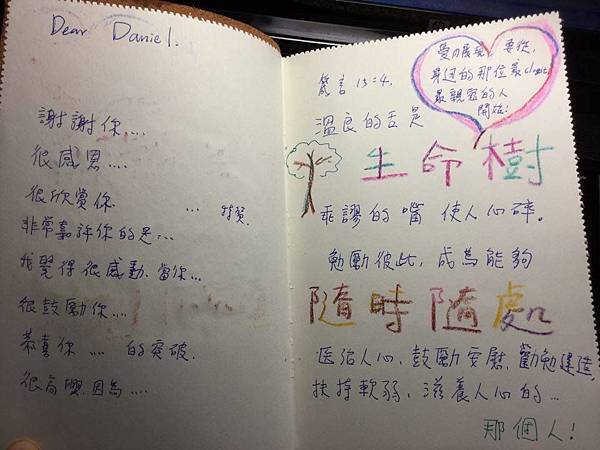 Dear Daniel.
謝謝你....
很感恩....
很欣賞你 ... 特質.
非常嘉許你的是...
我覺得很感動.當你...
很鼓勵你....
恭喜你 .... 的突破.
很高興.因為....
愛的展現,要從,
身邊的那位最close
最親密的人
開始!
箴言 15:4.
溫良的舌是
生命樹
乖謬的嘴 使人心碎.
勉勵彼此,成為能夠
隨時隨處
医治人心.鼓勵安慰.勸勉建造,
扶持軟弱、滋養人心的...
那個人!